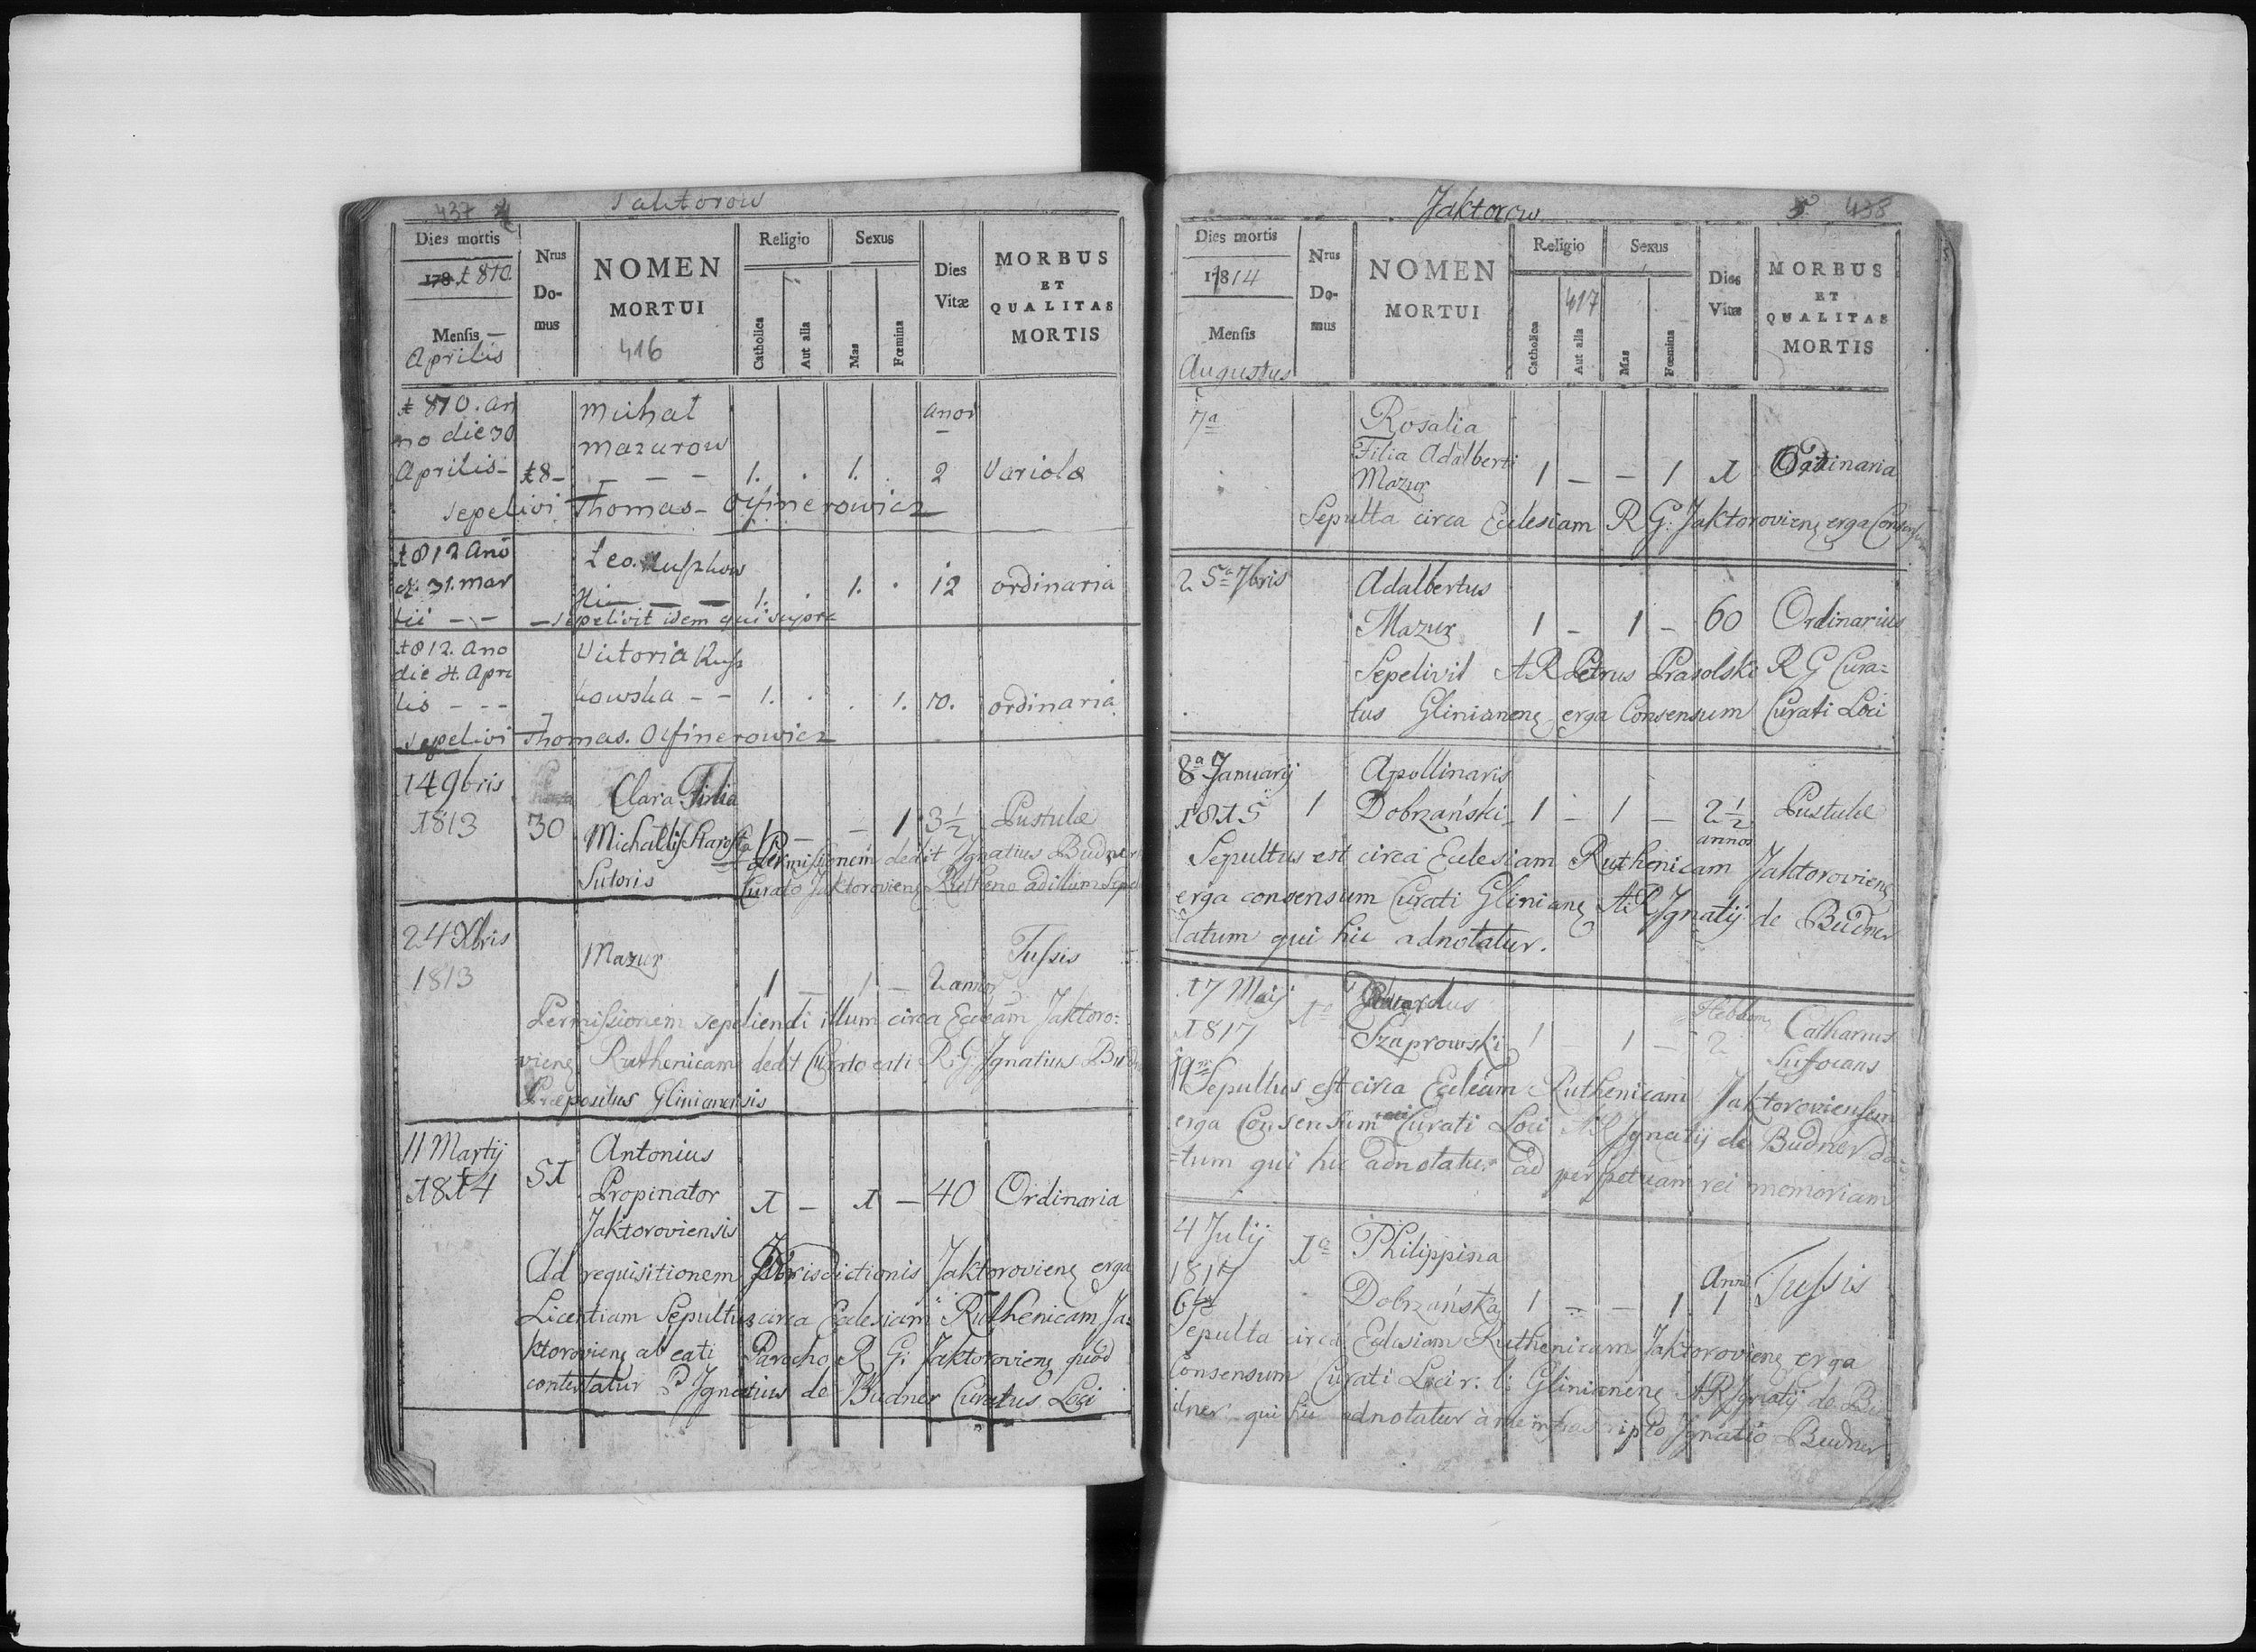 437 4
Jaktorow
Dies mortis
178 1810
Mensis
Aprilis
Nrus Do-mus
NOMEN MORTUI
416
Religio
Catholica
Aut alia
Sexus
Mas
Fœmina
Dies Vitæ
MORBUS ET QUALITAS MORTIS
1810. an Michal anor
no die 30 Mazurow
Aprilis - 18 - - - - 1. . 1. . 2 Variolæ
sepelivi Thomas - Olfinerowicz
1812 Ano Leo.
31. Mar 1. . 1. . 12 ordinaria
tii - - - sepelivit idem qui supra
1812. Ano Victoria Rusz
die 4. Apri
lis - - - kowska - - 1. . . 1. 10. ordinaria
sepelivi Thomas. Olfinerowicz
14 9bris Clara Filia
1813 30 Michaelis 1 - - 1 3 1/2 Pustulæ
Permissionem dedit Ignatius Budner
Sutoris Curato Jaktoroviens Rutheno ad illum
24 Xbris Mazur Tussis
1813 1 - 1 - 2 annor
Permissionem sepeliendi illum circa Eccleam Jaktoro=
viens Ruthenicam dedit R. G. Ignatius
Præpositus Glinianensis
11 Martij Antonius
1814 51 Propinator 1 - 1 - 40 Ordinaria
Jaktoroviensis
Ad requisitionem Jurisdictionis Jaktoroviens erga
Licentiam Sepultus circa Ecclesiam Ruthenicam Ja=
ktoroviens ab eati Parocho R. G: Jaktoroviens quod
contestatur P Ignatius de Budner Curatus Loci
Jaktorow
5 438
Dies mortis
17814
Mensis
Augustus
Nrus Do-mus
NOMEN MORTUI
Religio
Catholica
Aut alia
417
Sexus
Mas
Fœmina
Dies Vitæ
MORBUS ET QUALITAS MORTIS
7a Rosalia
Filia Adalberti
Mazur 1 - - 1 1 Ordinaria
Sepulta circa Ecclesiam R G: Jaktoroviens erga
25a 7bris Adalbertus
Mazur 1 - 1 - 60 Ordinarius
Sepelivit AR Petrus Prasolski R G Cura=
tus Glinianens erga Consensum Curati Loci
8a Januarij Apollinaris
1815 1 Dobrzański 1 - 1 - 2 1/2 Pustulæ
annor
Sepultus est circa Ecclesiam Ruthenicam Jaktoroviens
erga consensum Curati Glinians Ignatij de Budner
datum qui hic adnotatur.
17 Maij Hebdom Catharus
1817 Szaprowski 1 - 1 - 2 Suffocans
19 Sepultus est circa Eccleam Ruthenicam Jaktoroviensem
erga Consensum Curati Loci Ignatij de Budner da=
=tum qui hic adnotatur ad perpetuam rei memoriam
4 Julij 1a Philippina
1817 Dobrzańska 1 - - 1 1 Tussis
6ta
Sepulta circa Ecclesiam Ruthenicam Jaktoroviens erga
Consensum Curati Loci r. l: Glinianens AR Ignatij de Bu
dner qui hic adnotatur à me infrascripto Ignatio Budner